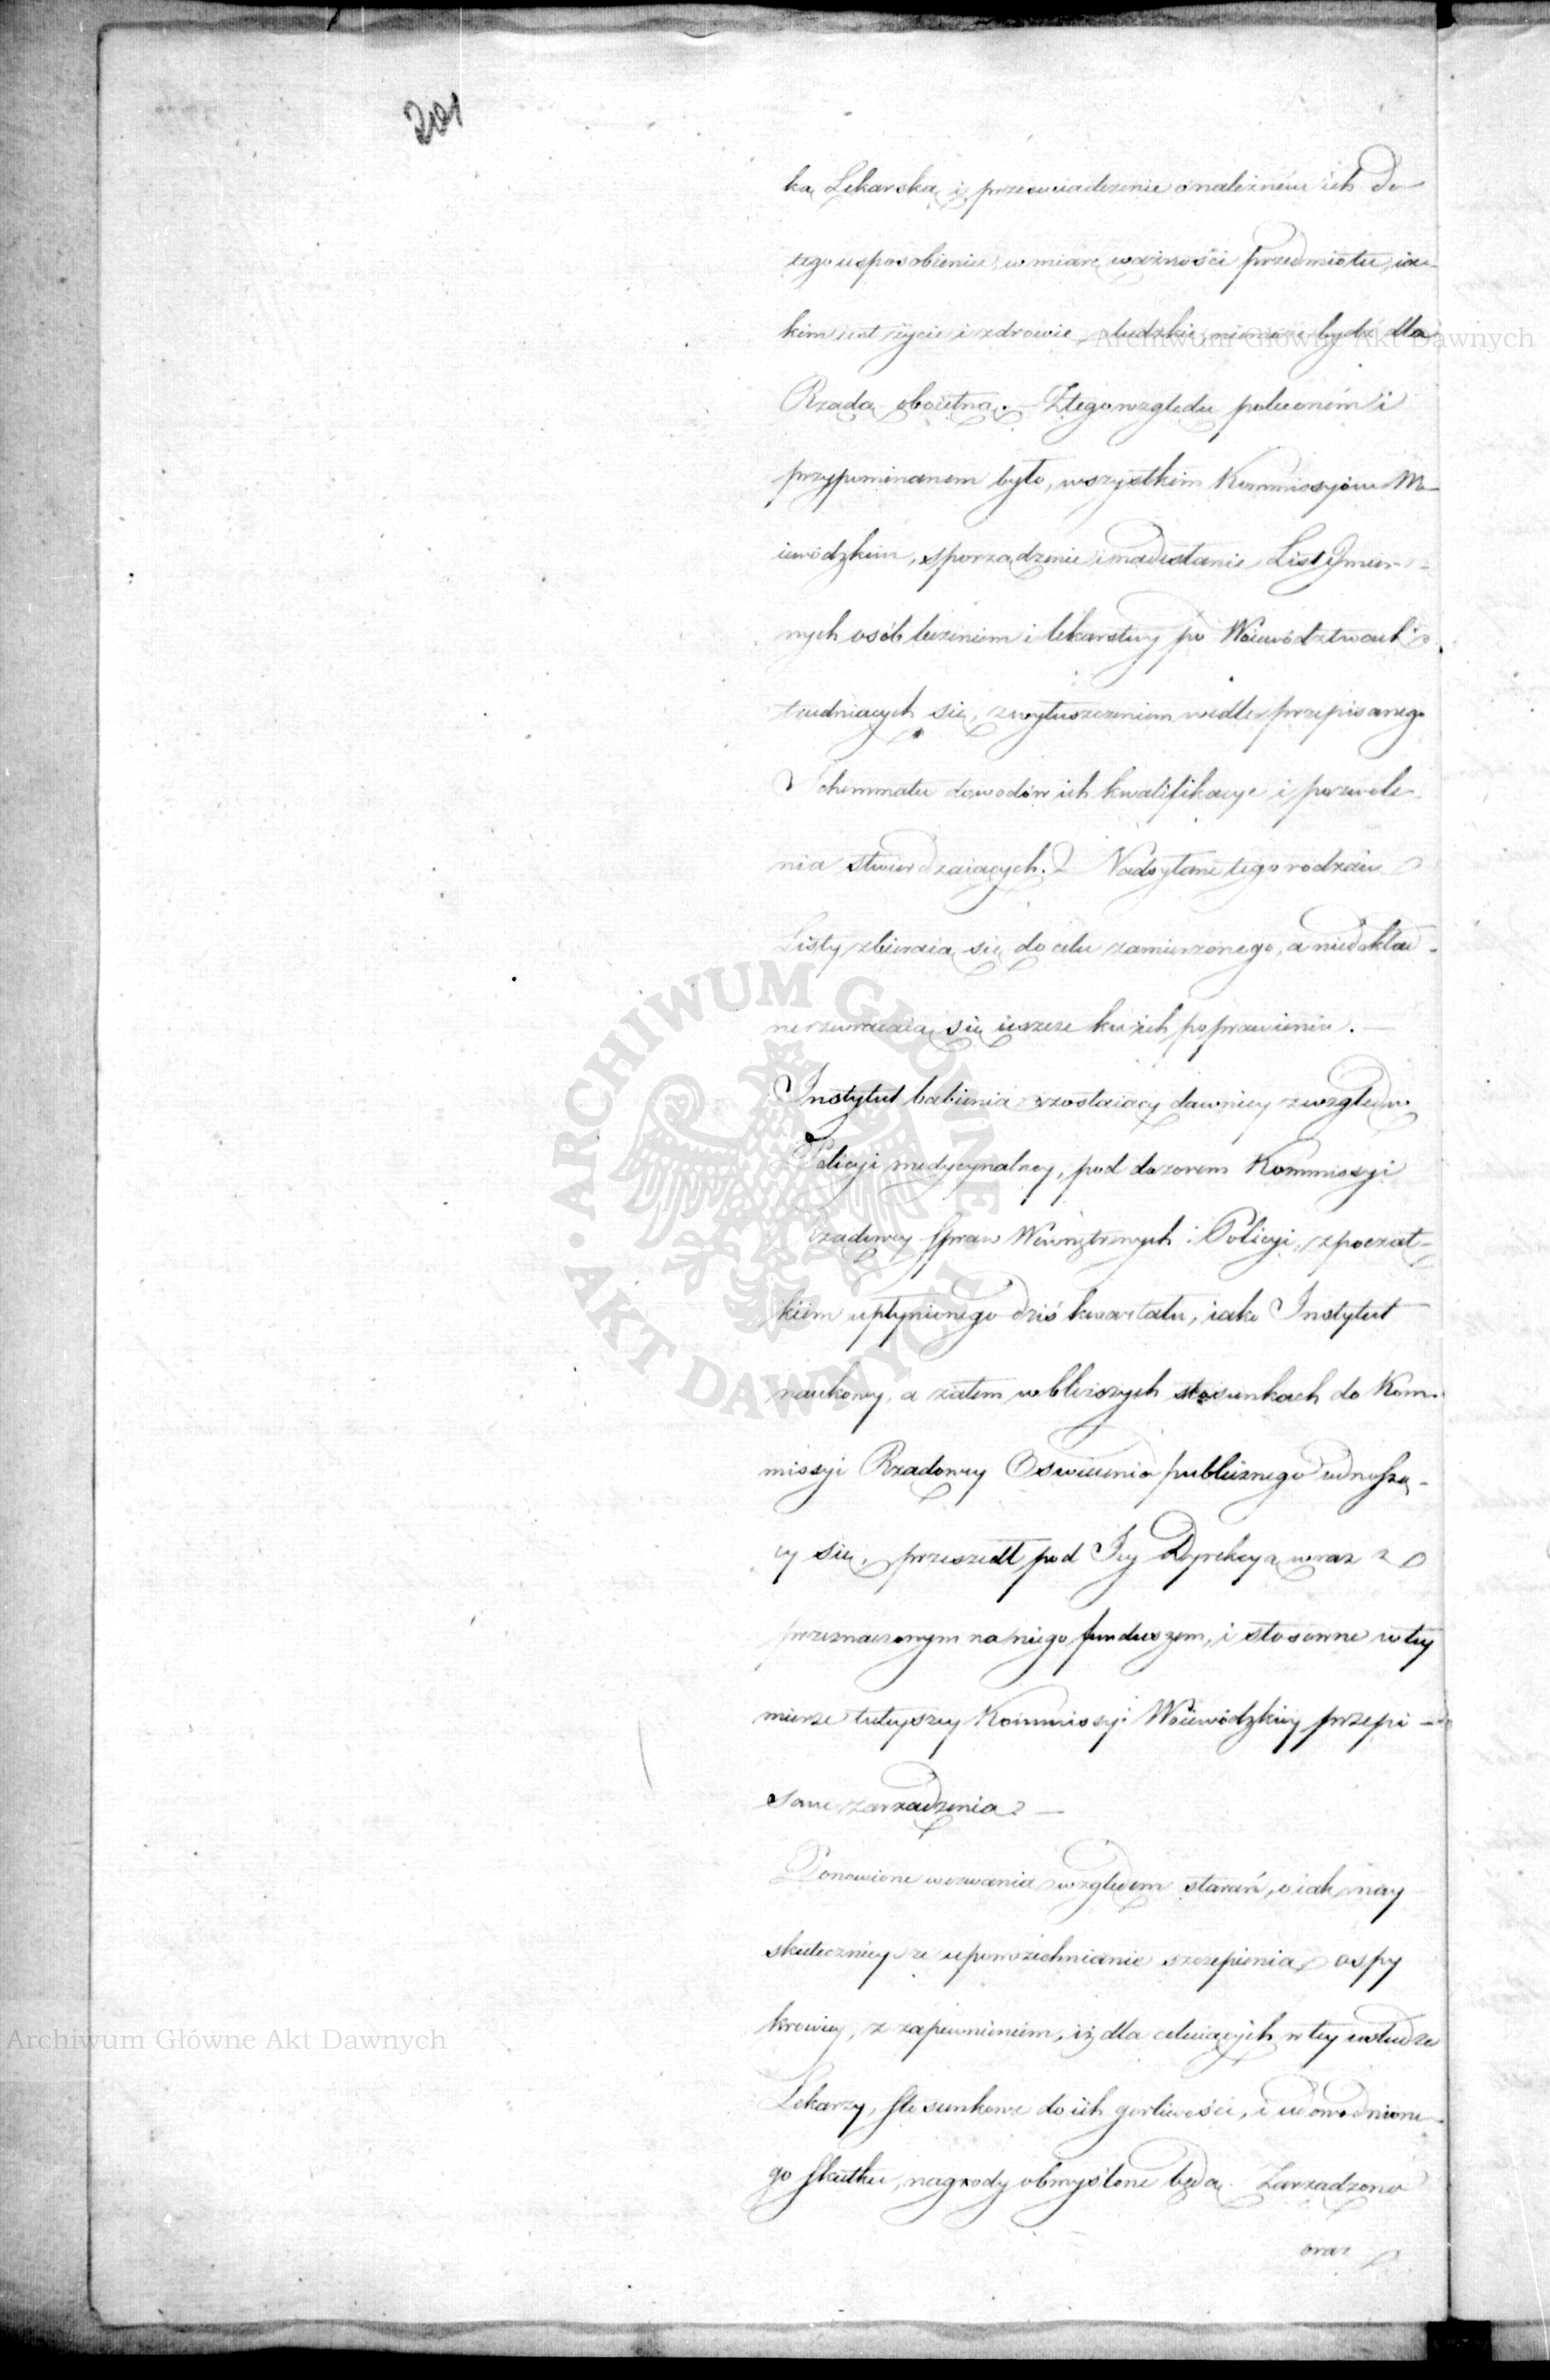 201
ką Lekarską i przeswiadczenie o należném ich do
tego usposobieniu, w miarę ważności przedmiotu, ia-
kim iest życie i zdrowie ludzkie, niemoże bydź dla
Rządu oboiętną. — Z tego względu poleconém i
przypominanem było, wszystkim Kommissyiom Wo-
iewódzkim, sporządzenie i nadesłanie List Imien-
nych osób leczeniem i lekarstwy po Woiewództwach
trudniących się, z wyłuszczeniem wedle przepisanego
Schemmatu dowodów ich kwalifikacye i pozwole-
nia stwierdzaiących. Nadsyłane tego rodzaiu
Listy zbieraią się do celu zamierzonego, a niedokład-
ne zwracaią się ieszcze ku ich poprawieniu. —
Instytut babienia zostaiący dawniey z względu
Policyi medycynalney, pod dozorem Kommissyi
Rządowey Spraw Wewnętrznych i Policyi, z począt-
kiem upłynionego dziś kwartału, iako Instytut
naukowy, a zatem w bliższych stosunkach do Kom-
missyi Rządowey Oswiecenia publicznego odnoszą-
cy się, przeszedł pod Jey Dyrekcyą wraz z
przeznaczonym na niego funduszem, i stosowne w tey
mierze tuteyszey Kommissyi Woiewódzkiey przepi-
sane zarządzenia. —
Ponowione wezwania względem starań, o iak nay
skutecznieysze upowszechnianie szczepienia ospy
krowiey, z zapewnieniem, iż dla celuiących w tey usłudze
Lekarzy, stosunkowe do ich gorliwości, i udowodnione-
go skutku, nagrody obmyślone będą. Zarządzono
oraz
Archiwum Główne Akt Dawnych
ARCHIWUM GŁÓWNE AKT DAWNYCH
Archiwum Główne Akt Dawnych